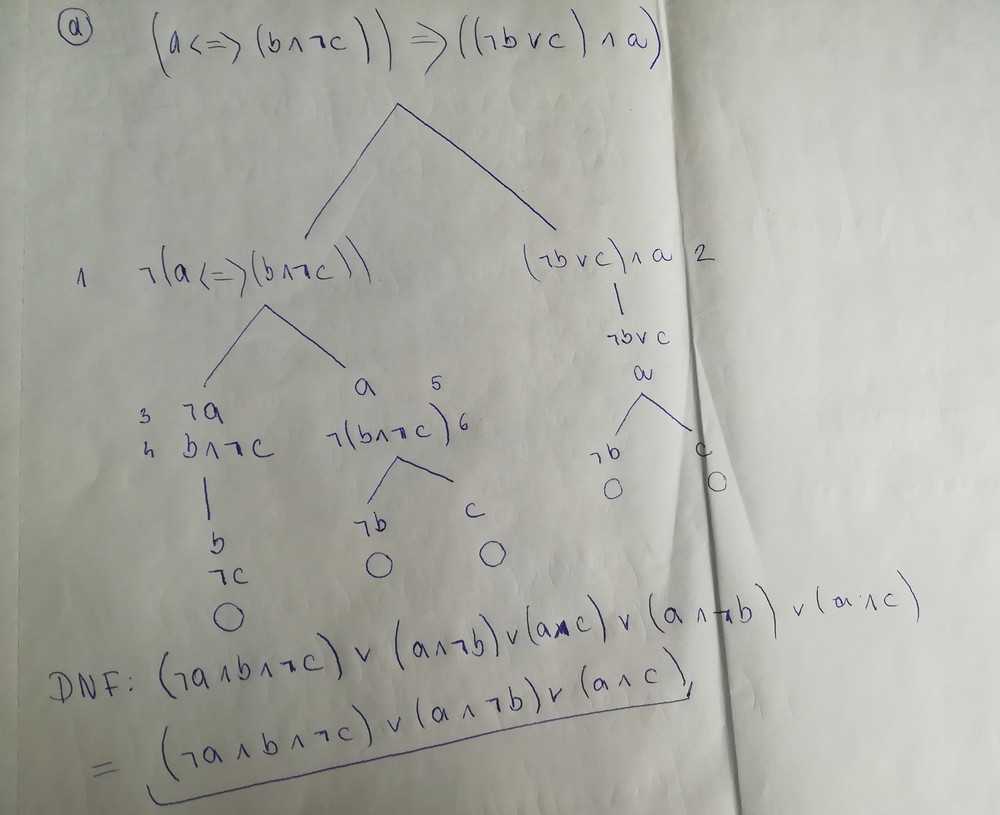 ⓐ (a<=>(b∧¬c)) => ((¬b∨c)∧a)
1 ¬(a<=>(b∧¬c)) (¬b∨c)∧a 2
¬b∨c
a
a 5
3 ¬a
4 b∧¬c ¬(b∧¬c) 6
¬b c
¬b c
b
¬c
DNF: (¬a∧b∧¬c) ∨ (a∧¬b)∨(a∧c) ∨ (a∧¬b) ∨(a∧c)
= (¬a∧b∧¬c)∨(a∧¬b)∨(a∧c)